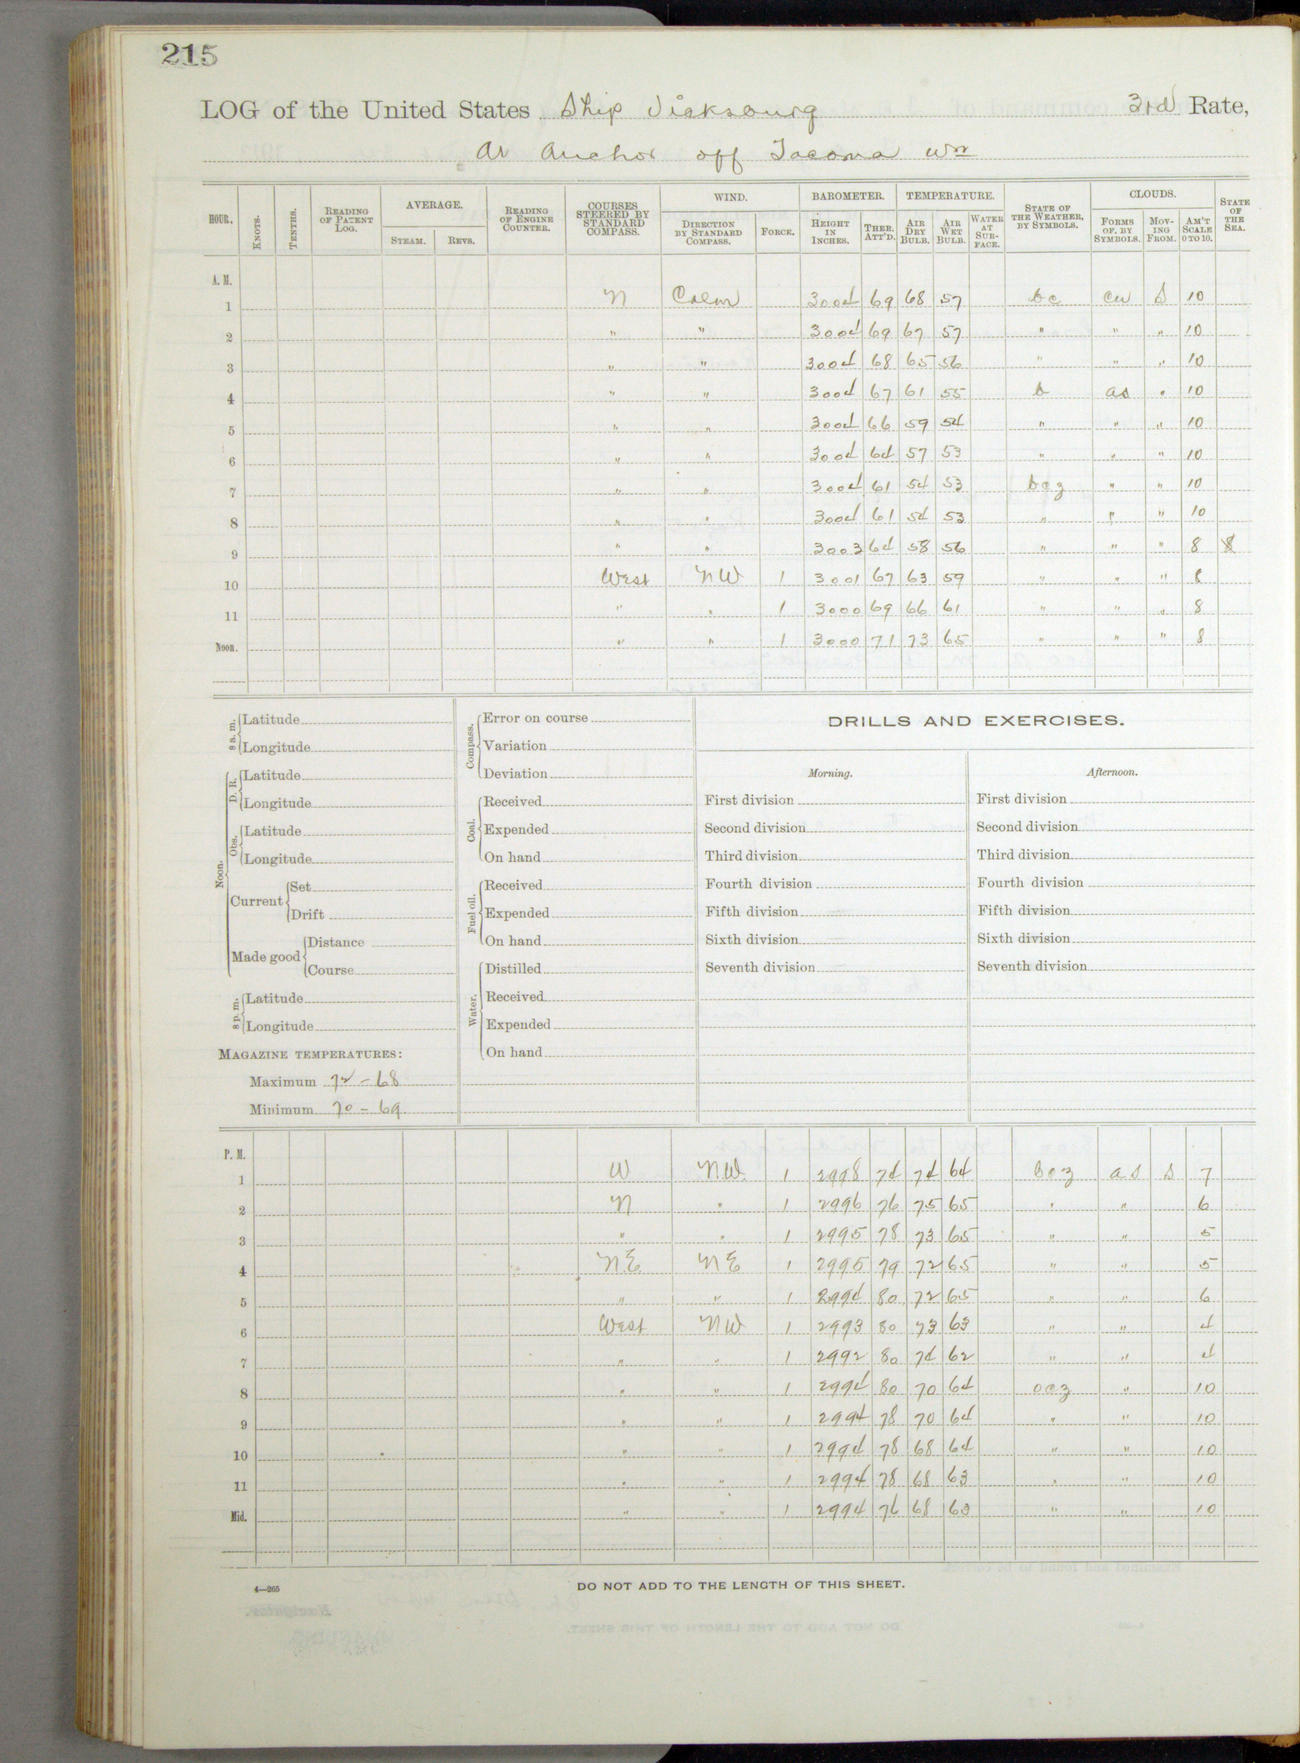 215
LOG of the United States Ship Vicksburg 3rd Rate,
At Anchor off Tacoma Wn
HOUR. KNOTS. TENTHS. READING OF PATENT LOG. AVERAGE. STEAM. REVS. READING OF ENGINE COUNTER. COURSES STEERED BY STANDARD COMPASS. WIND. DIRECTION BY STANDARD COMPASS. FORCE. BAROMETER. HEIGHT IN INCHES. THER. ATT'D. TEMPERATURE. AIR DRY BULB. AIR WET BULB. WATER AT SURFACE. STATE OF THE WEATHER, BY SYMBOLS. CLOUDS. FORMS OF, BY SYMBOLS. MOVING FROM. AM'T SCALE 0 TO 10. STATE OF THE SEA.
A. M.
1 N Calm 3004 69 68 57 bc cu S 10
2 " " 3004 69 67 57 " " " 10
3 " " 3004 68 65 56 " " " 10
4 " " 3004 67 61 55 b as " 10
5 " " 3004 66 59 54 " " " 10
6 " " 3004 64 57 53 " " " 10
7 " " 3004 61 54 53 bcz " " 10
8 " " 3004 61 54 53 " " " 10
9 " " 3003 64 58 56 " " " 8
10 West NW 1 3001 67 63 59 " " " 8
11 " " 1 3000 69 66 61 " " " 8
Noon. " " 1 3000 71 73 65 " " " 8
8 a. m. Latitude
Longitude
Noon. D. R. Latitude
Longitude
Obs. Latitude
Longitude
Current Set
Drift
Made good Distance
Course
8 p. m. Latitude
Longitude
MAGAZINE TEMPERATURES:
Maximum 72 - 68
Minimum 70 - 69
Compass. Error on course
Variation
Deviation
Coal. Received
Expended
On hand
Fuel oil. Received
Expended
On hand
Water. Distilled
Received
Expended
On hand
DRILLS AND EXERCISES.
Morning.
First division
Second division
Third division
Fourth division
Fifth division
Sixth division
Seventh division
Afternoon.
First division
Second division
Third division
Fourth division
Fifth division
Sixth division
Seventh division
P. M.
1 W NW 1 2998 74 74 64 bcz as S 7
2 N " 1 2996 76 75 65 " " 6
3 " " 1 2995 78 73 65 " " 5
4 NE NE 1 2995 79 72 65 " " 5
5 " " 1 2994 80 72 65 " " 6
6 West NW 1 2993 80 73 63 " " 4
7 " " 1 2992 80 74 62 " " 4
8 " " 1 2994 80 70 64 ocz " 10
9 " " 1 2994 78 70 64 " " 10
10 " " 1 2994 78 68 64 " " 10
11 " " 1 2994 78 68 63 " " 10
Mid. " " 1 2994 76 68 63 " " 10
4—265
DO NOT ADD TO THE LENGTH OF THIS SHEET.